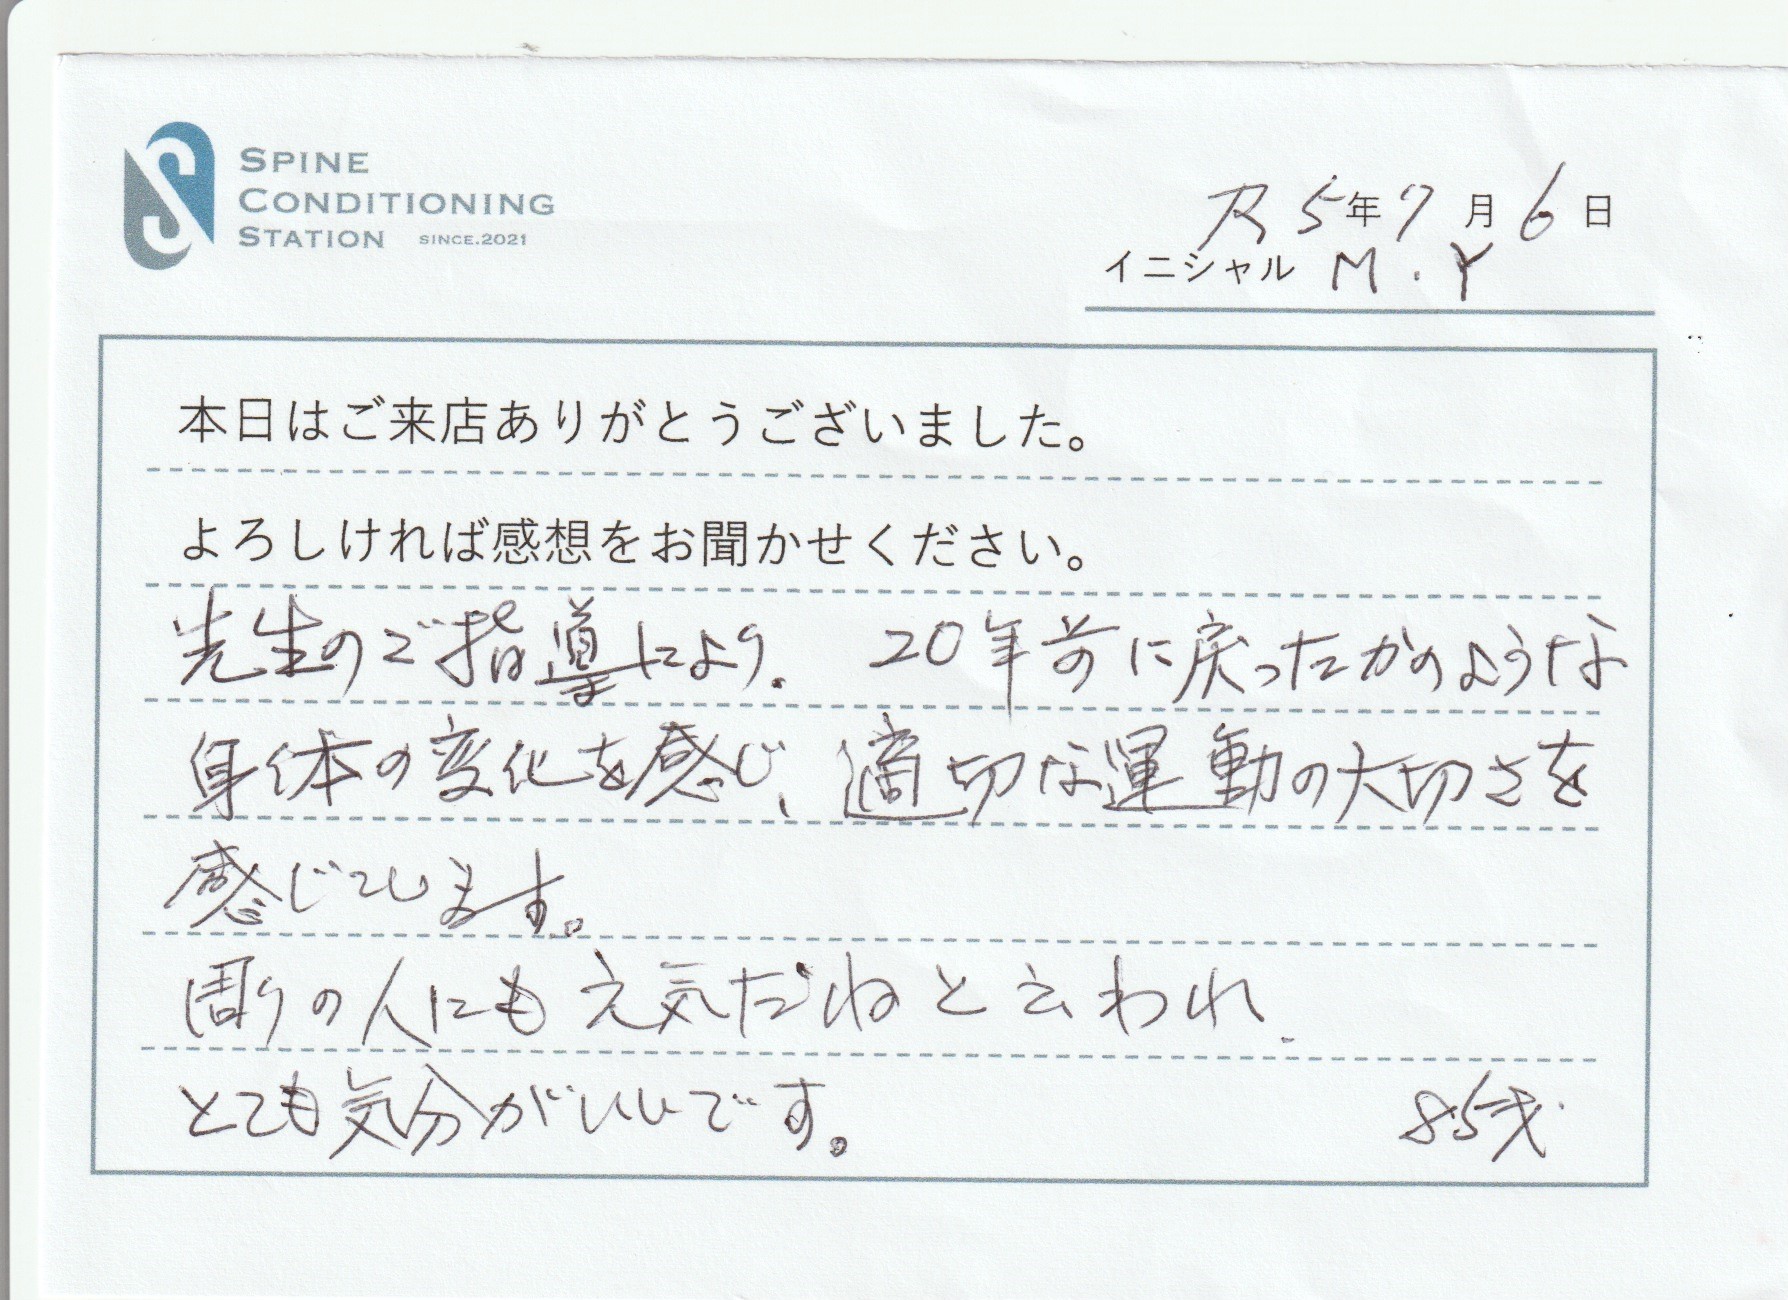 SPINE
CONDITIONING
STATION SINCE.2021
R5年7月6日
イニシャル M.Y
本日はご来店ありがとうございました。
よろしければ感想をお聞かせください。
先生のご指導により、20年前に戻ったかのような
身体の変化を感じ、適切な運動の大切さを
感じています。
周りの人にも元気だねと云われ、
とても気分がいいです。 85才